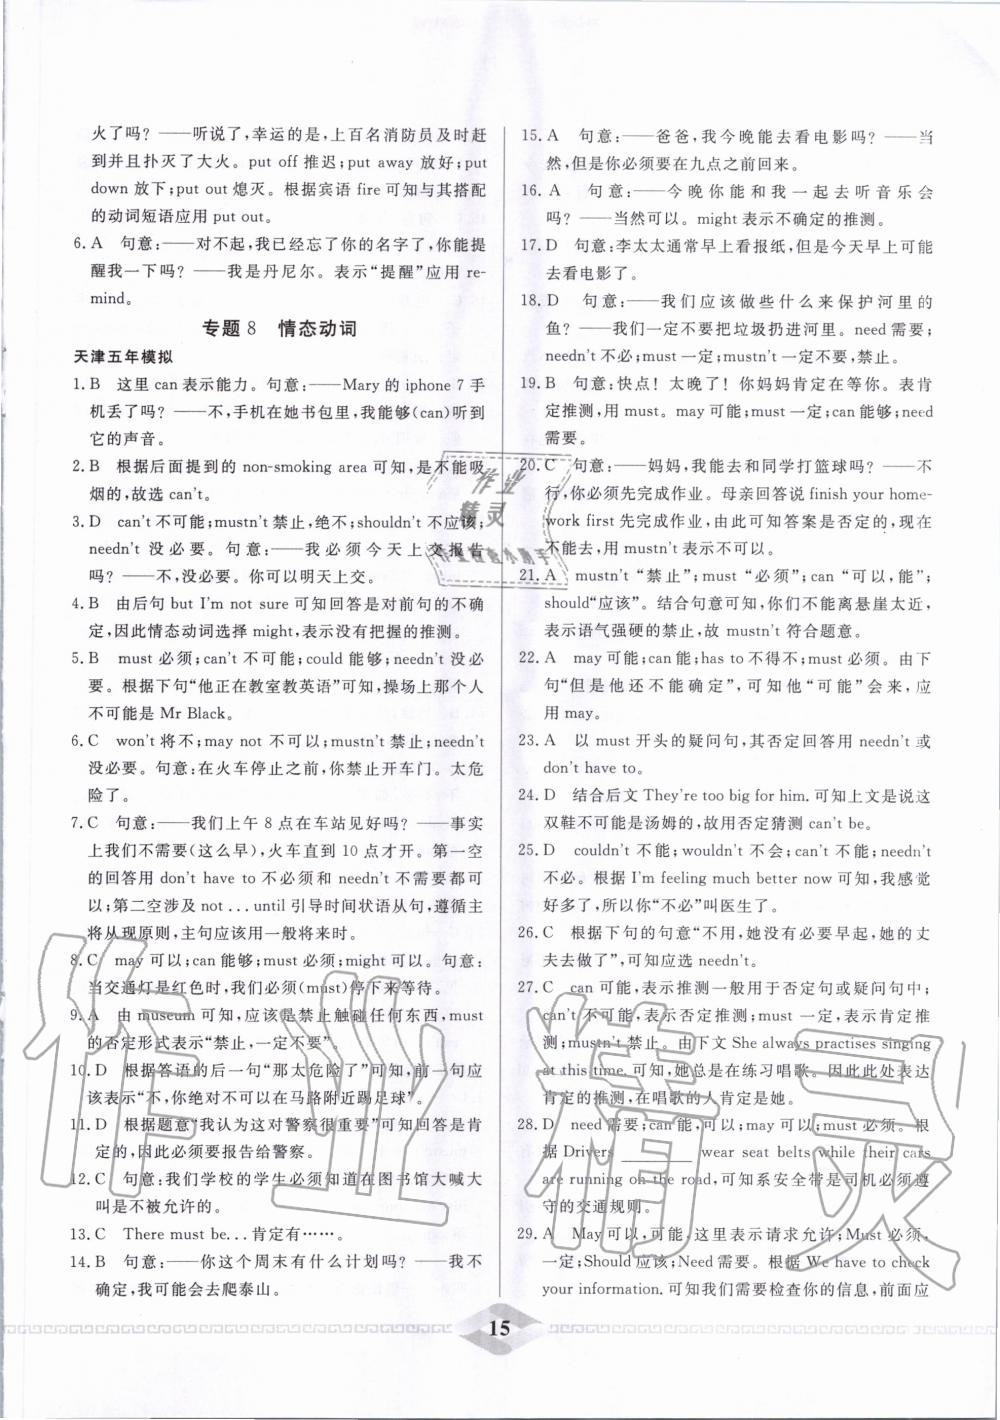 火了吗？——听说了,幸运的是,上百名消防员及时赶
到并且扑灭了大火。put off 推迟;put away 放好;put
down 放下;put out 熄灭。根据宾语 fire 可知与其搭配
的动词短语应用 put out.
6. A 句意:——对不起,我已经忘了你的名字了,你能提
醒我一下吗？——我是丹尼尔。表示“提醒”应用 re-
mind.
专题 8 情态动词
天津五年模拟
1. B 这里 can 表示能力。句意:——Mary 的 iphone 7 手
机丢了吗？——不,手机在她书包里,我能够(can)听到
它的声音。
2. B 根据后面提到的 non-smoking area 可知,是不能吸
烟的,故选 can't。
3. D can't 不可能;mustn't 禁止,绝不;shouldn't 不应该;
needn't 没必要。句意:——我必须今天上交报告
吗？——不,没必要。你可以明天上交。
4. B 由后句 but I'm not sure 可知回答是对前句的不确
定,因此情态动词选择 might,表示没有把握的推测。
5. B must 必须;can't 不可能;could 能够;needn't 没必
要。根据下句“他正在教室教英语”可知,操场上那个人
不可能是 Mr Black。
6. C won't 将不;may not 不可以;mustn't 禁止;needn't
没必要。句意:在火车停止之前,禁止开车门。太危
险了。
7. C 句意:——我们上午 8 点在车站见好吗？——事实
上我们不需要(这么早),火车直到 10 点才开。第一空
的回答用 don't have to 不必须和 needn't 不需要都可
以;第二空涉及 not ... until 引导时间状语从句,遵循主
将从现原则,主句应该用一般将来时。
8. C may 可以;can 能够;must 必须;might 可以。句意:
当交通灯是红色时,我们必须(must)停下来等待。
9. A 由 museum 可知,应该是禁止触碰任何东西,must
的否定形式表示“禁止,一定不要”。
10. D 根据答语的后一句“那太危险了”可知,前一句应
该表示“不,你绝对不可以在马路附近踢足球”。
11. D 根据题意“我认为这对警察很重要”可知回答是肯
定的,因此必须要报告给警察。
12. C 句意:我们学校的学生必须知道在图书馆大喊大
叫是不被允许的。
13. C There must be... 肯定有……。
14. B 句意:——你这个周末有什么计划吗？——我不
确定,我可能会去爬泰山。
15. A 句意:——爸爸,我今晚能去看电影吗？——当
然,但是你必须要在九点之前回来。
16. A 句意:——今晚你能和我一起去听音乐会
吗？——当然可以。might 表示不确定的推测。
17. D 句意:李太太通常早上看报纸,但是今天早上可能
去看电影了。
18. D 句意:——我们应该做些什么来保护河里的
鱼？——我们一定不要把垃圾扔进河里。need 需要;
needn't 不必;must 一定;mustn't 一定不要,禁止。
19. B 句意:快点！太晚了！你妈妈肯定在等你。表肯
定推测,用 must。may 可能;must 一定;can 能够;need
需要。
20. C 句意:——妈妈,我能去和同学打篮球吗？——不
行,你必须先完成作业。母亲回答说 finish your home-
work first 先完成作业,由此可知答案是否定的,现在
不能去,用 mustn't 表示不可以。
21. A mustn't “禁止”;must “必须”;can “可以,能”;
should“应该”。结合句意可知,你们不能离悬崖太近,
表示语气强硬的禁止,故 mustn't 符合题意。
22. A may 可能;can 能;has to 不得不;must 必须。由下
句“但是他还不能确定”,可知他“可能”会来,应
用 may。
23. A 以 must 开头的疑问句,其否定回答用 needn't 或
don't have to。
24. D 结合后文 They're too big for him. 可知上文是说这
双鞋不可能是汤姆的,故用否定猜测 can't be。
25. D couldn't 不能;wouldn't 不会;can't 不能;needn't
不必。根据 I'm feeling much better now 可知,我感觉
好多了,所以你“不必”叫医生了。
26. C 根据下句的句意“不用,她没有必要早起,她的丈
夫去做了”,可知应选 needn't。
27. C can 可能,表示推测一般用于否定句或疑问句中;
can't 不可能,表示否定推测;must 一定,表示肯定推
测;mustn't 禁止。由下文 She always practises singing
at this time. 可知,她总是在练习唱歌。因此此处表达
肯定的推测,在唱歌的人肯定是她。
28. D need 需要;can 能;may 可以;must 必须。根
据 Drivers ________ wear seat belts while their cars
are running on the road,可知系安全带是司机必须遵
守的交通规则。
29. A May 可以,可能,表示请求允许;Must 必须,
一定;Should 应该;Need 需要。根据 We have to check
your information. 可知我们需要检查你的信息,前面应
15
作业
精灵